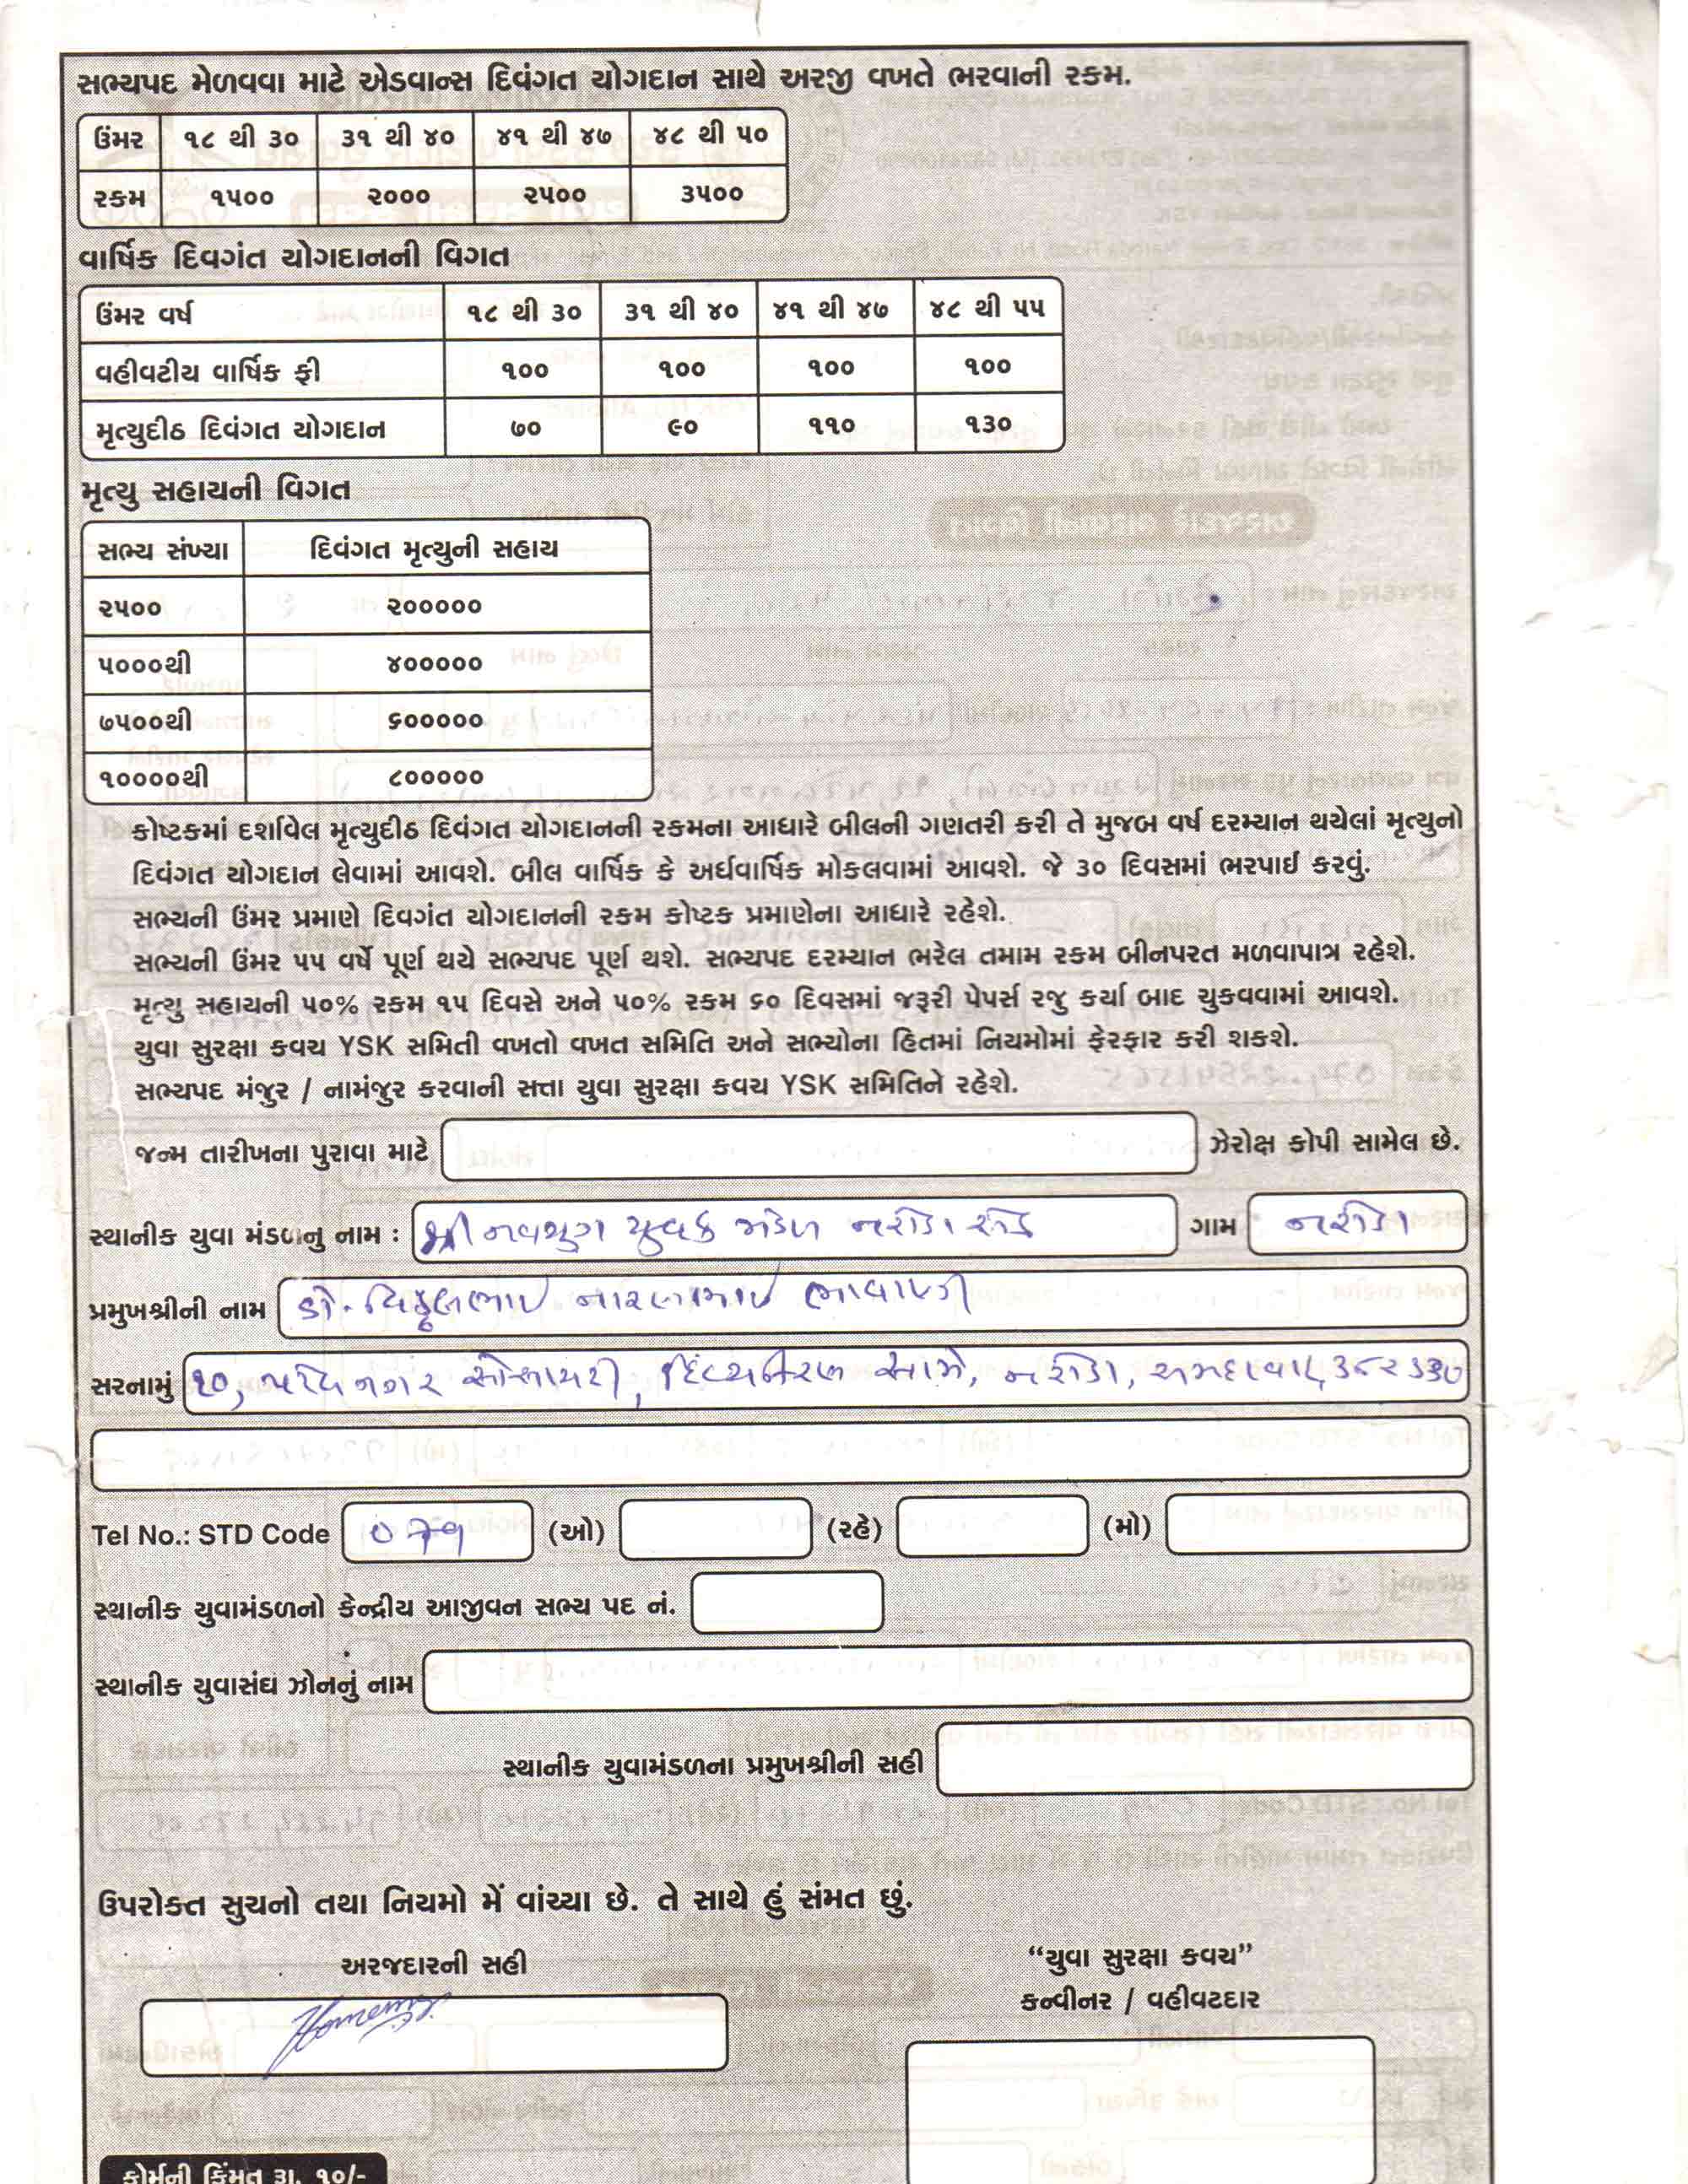 સભ્યપદ મેળવવા માટે એડવાન્સ દિવંગત યોગદાન સાથે અરજી વખતે ભરવાની રકમ.
ઉંમર ૧૮ થી ૩૦ ૩૧ થી ૪૦ ૪૧ થી ૪૭ ૪૮ થી ૫૦
રકમ ૧૫૦૦ ૨૦૦૦ ૨૫૦૦ ૩૫૦૦
વાર્ષિક દિવગંત યોગદાનની વિગત
ઉંમર વર્ષ ૧૮ થી ૩૦ ૩૧ થી ૪૦ ૪૧ થી ૪૭ ૪૮ થી ૫૫
વહીવટીય વાર્ષિક ફી ૧૦૦ ૧૦૦ ૧૦૦ ૧૦૦
મૃત્યુદીઠ દિવંગત યોગદાન ૭૦ ૯૦ ૧૧૦ ૧૩૦
મૃત્યુ સહાયની વિગત
સભ્ય સંખ્યા દિવંગત મૃત્યુની સહાય
૨૫૦૦ ૨૦૦૦૦૦
૫૦૦૦થી ૪૦૦૦૦૦
૭૫૦૦થી ૬૦૦૦૦૦
૧૦૦૦૦થી ૮૦૦૦૦૦
કોષ્ટકમાં દર્શાવેલ મૃત્યુદીઠ દિવંગત યોગદાનની રકમના આધારે બીલની ગણતરી કરી તે મુજબ વર્ષ દરમ્યાન થયેલાં મૃત્યુનો
દિવંગત યોગદાન લેવામાં આવશે. બીલ વાર્ષિક કે અર્ધવાર્ષિક મોકલવામાં આવશે. જે ૩૦ દિવસમાં ભરપાઈ કરવું.
સભ્યની ઉંમર પ્રમાણે દિવગંત યોગદાનની રકમ કોષ્ટક પ્રમાણેના આધારે રહેશે.
સભ્યની ઉંમર ૫૫ વર્ષે પૂર્ણ થયે સભ્યપદ પૂર્ણ થશે. સભ્યપદ દરમ્યાન ભરેલ તમામ રકમ બીનપરત મળવાપાત્ર રહેશે.
મૃત્યુ સહાયની ૫૦% રકમ ૧૫ દિવસે અને ૫૦% રકમ ૬૦ દિવસમાં જરૂરી પેપર્સ રજુ કર્યા બાદ ચુકવવામાં આવશે.
યુવા સુરક્ષા કવચ YSK સમિતી વખતો વખત સમિતિ અને સભ્યોના હિતમાં નિયમોમાં ફેરફાર કરી શકશે.
સભ્યપદ મંજુર / નામંજુર કરવાની સત્તા યુવા સુરક્ષા કવચ YSK સમિતિને રહેશે.
જન્મ તારીખના પુરાવા માટે ઝેરોક્ષ કોપી સામેલ છે.
સ્થાનીક યુવા મંડળનુ નામ : શ્રી નવયુગ યુવક મંડળ નરોડા રોડ ગામ નરોડા
પ્રમુખશ્રીની નામ ડો. વિઠ્ઠલભાઈ નારણભાઈ ભાવાણી
સરનામું ૧૦, નગર સોસાયટી, સામે, નરોડા, અમદાવાદ ૩૮૨૩૩૦
Tel No.: STD Code ૦૭૯ (ઓ) (રહે) (મો)
સ્થાનીક યુવામંડળનો કેન્દ્રીય આજીવન સભ્ય પદ નં.
સ્થાનીક યુવાસંઘ ઝોનનું નામ
સ્થાનીક યુવામંડળના પ્રમુખશ્રીની સહી
ઉપરોક્ત સુચનો તથા નિયમો મેં વાંચ્યા છે. તે સાથે હું સંમત છું.
અરજદારની સહી
“યુવા સુરક્ષા કવચ”
કન્વીનર / વહીવટદાર
ફોર્મની કિંમત રૂા. ૧૦/-